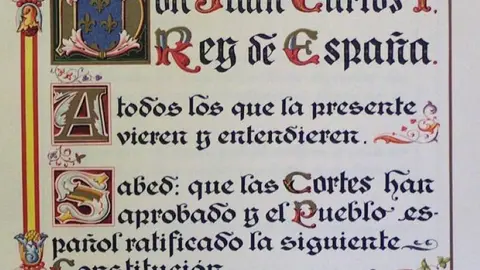 Don Juan Carlos I.
Rey de España.
A todos los que la presente
vieren y entendieren.
Sabed: que las Cortes han
aprobado y el Pueblo es-
pañol ratificado la siguiente
Constitución